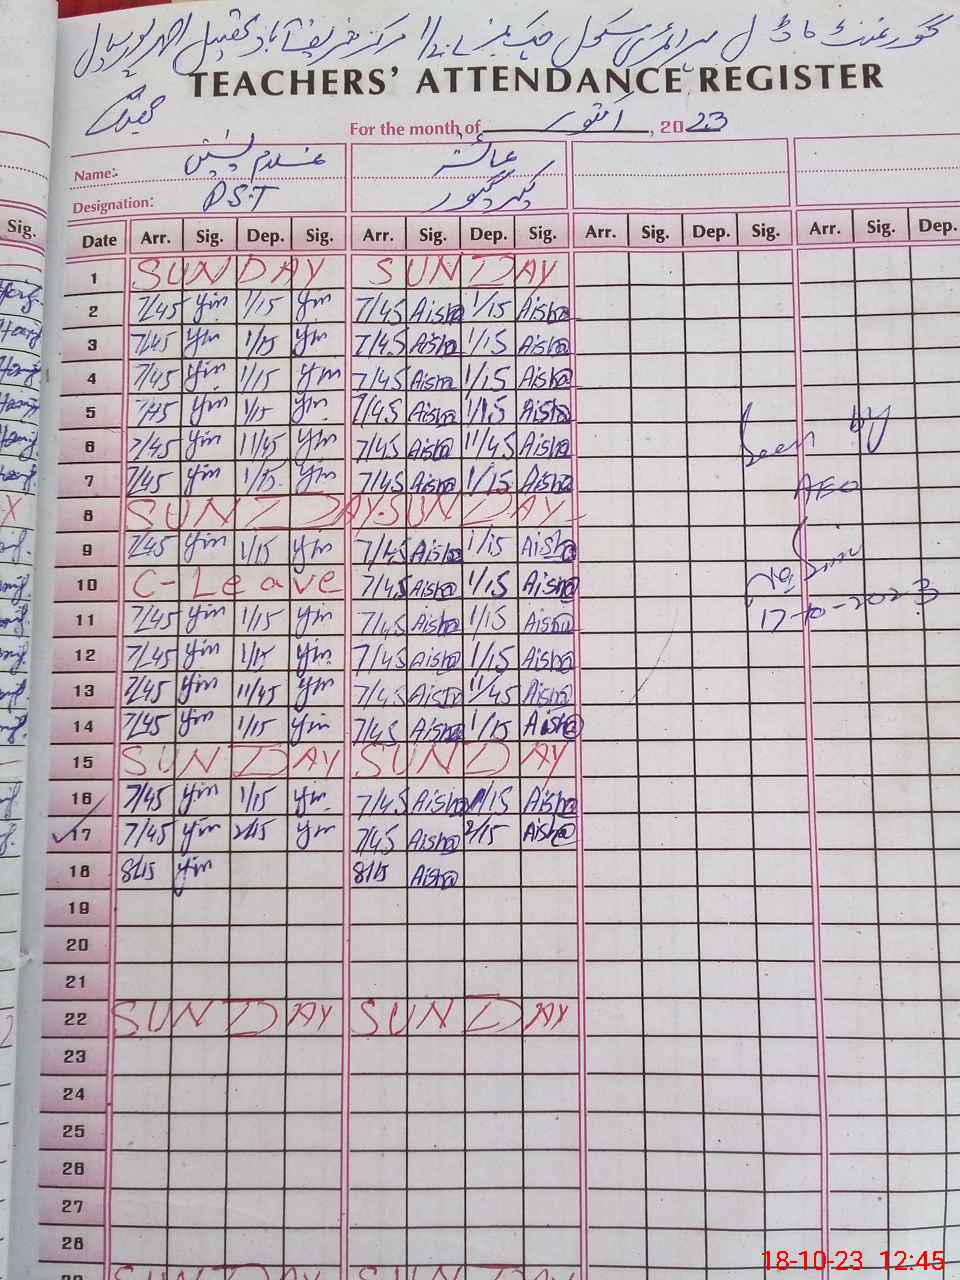 گورنمنٹ ماڈل پرائمری سکول چک نمبر مرکز شریف آباد تحصیل احمد پور سیال
TEACHERS' ATTENDANCE REGISTER
For the month of اکتوبر, 2023
Name:- غلام یٰسین عائشہ
Designation: P.S.T کیئر گیور
Sig. Date Arr. Sig. Dep. Sig. Arr. Sig. Dep. Sig. Arr. Sig. Dep. Sig. Arr. Sig. Dep.
1 SUNDAY SUNDAY
2 7/45 Yin 1/15 Yin 7/45 Aisha 1/15 Aisha
3 7/45 Yin 1/15 Yin 7/45 Aisha 1/15 Aisha
4 7/45 Yin 1/15 Yin 7/45 Aisha 1/15 Aisha
5 7/45 Yin 1/15 Yin 7/45 Aisha 1/15 Aisha
6 7/45 Yin 11/45 Yin 7/45 Aisha 11/45 Aisha
7 7/45 Yin 1/15 Yin 7/45 Aisha 1/15 Aisha
8 SUNDAY. SUNDAY
9 7/45 Yin 1/15 Yin 7/45 Aisha 1/15 Aisha
10 C-Leave 7/45 Aisha 1/15 Aisha
11 7/45 Yin 1/15 Yin 7/45 Aisha 1/15 Aisha
12 7/45 Yin 1/15 Yin 7/45 Aisha 1/15 Aisha
13 7/45 Yin 11/45 Yin 7/45 Aisha 11/45 Aisha
14 7/45 Yin 1/15 Yin 7/45 Aisha 1/15 Aisha
15 SUNDAY SUNDAY
16 7/45 Yin 1/15 Yin 7/45 Aisha 1/15 Aisha
17 7/45 Yin 2/15 Yin 7/45 Aisha 2/15 Aisha
18 8/15 Yin 8/15 Aisha
19
20
21
22 SUNDAY SUNDAY
23
24
25
26
27
28
29 SUNDAY SUNDAY
Seen by
AEO
17-10-2023
18-10-23 12:45